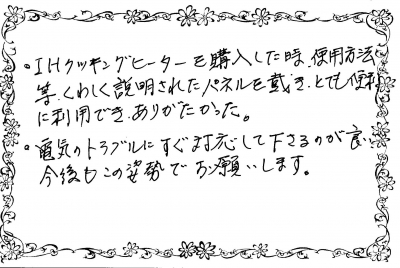 ・IHクッキングヒーターを購入した時、使用方法
等、くわしく説明されたパネルを戴き、とても便利
に利用でき、ありがたかった。
・電気のトラブルにすぐ対応して下さるのが良い
今後もこの姿勢でお願いします。